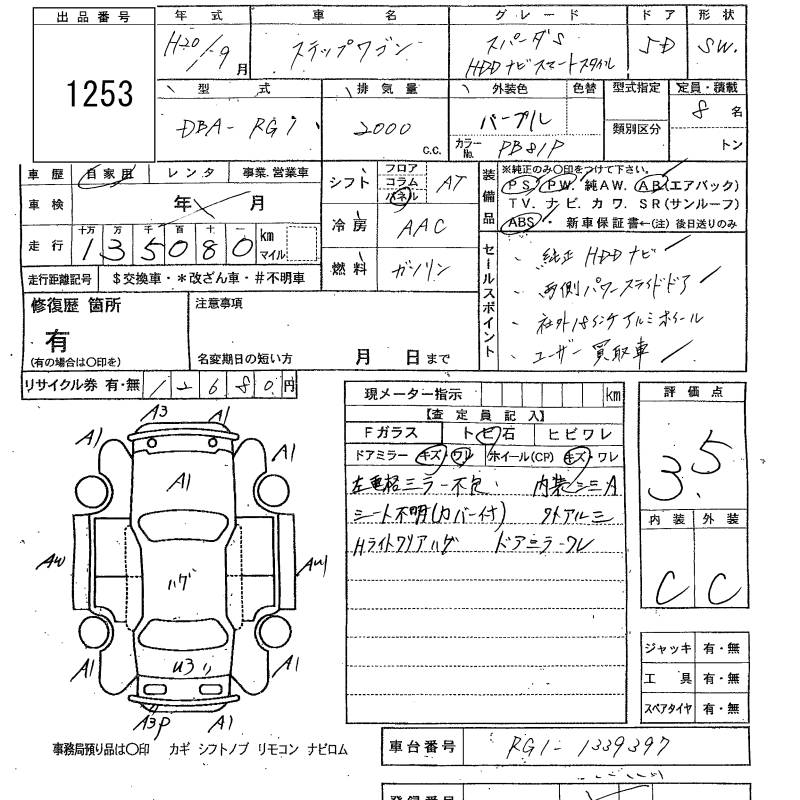 出品番号 年式 車名 グレード ドア 形状
1253 H20/9月 ステップワゴン スパーダS 5D SW.
HDDナビスマートスタイル
型式 排気量 外装色 色替 型式指定 定員・積載
DBA-RG1 2000c.c. パープル 類別区分 8名
カラーNo. PB81P トン
車歴 自家用 レンタ 事業.営業車
車検 年 月
走行 十万 万 千 百 十 一 km マイル
135080
走行距離記号 $交換車・*改ざん車・#不明車
シフト フロア コラム パネル AT
冷房 AAC
燃料 ガソリン
装備品 ※純正のみ〇印をつけて下さい。
PS. PW. 純AW. AB(エアバック)
TV. ナビ. カワ. SR(サンルーフ)
ABS・ 新車保証書←(注) 後日送りのみ
セールスポイント
純正 HDDナビ
両側パワースライドドア
社外18インチアルミホイール
ユーザー買取車
修復歴 箇所 注意事項
有
(有の場合は〇印を) 名変期日の短い方 月 日まで
リサイクル券 有・無 12680円
現メーター指示 km
【査定員記入】
Fガラス トビ石 ヒビワレ
ドアミラー キズ・ワレ ホイール(CP) キズ・ワレ
左車格ミラー不包. 内装シミA
シート不明(カバー付) 外アルミ
Hライトクリアハゲ ドアミラーワレ
評価点
3.5
内装 外装
C C
ジャッキ 有・無
工具 有・無
スペアタイヤ 有・無
A3 A1
A1 A1
A1
AW ハゲ AW1
A1 U3 リ A1
A3P A1
事務局預り品は〇印 カギ シフトノブ リモコン ナビロム
車台番号 RG1-1339397
登録番号